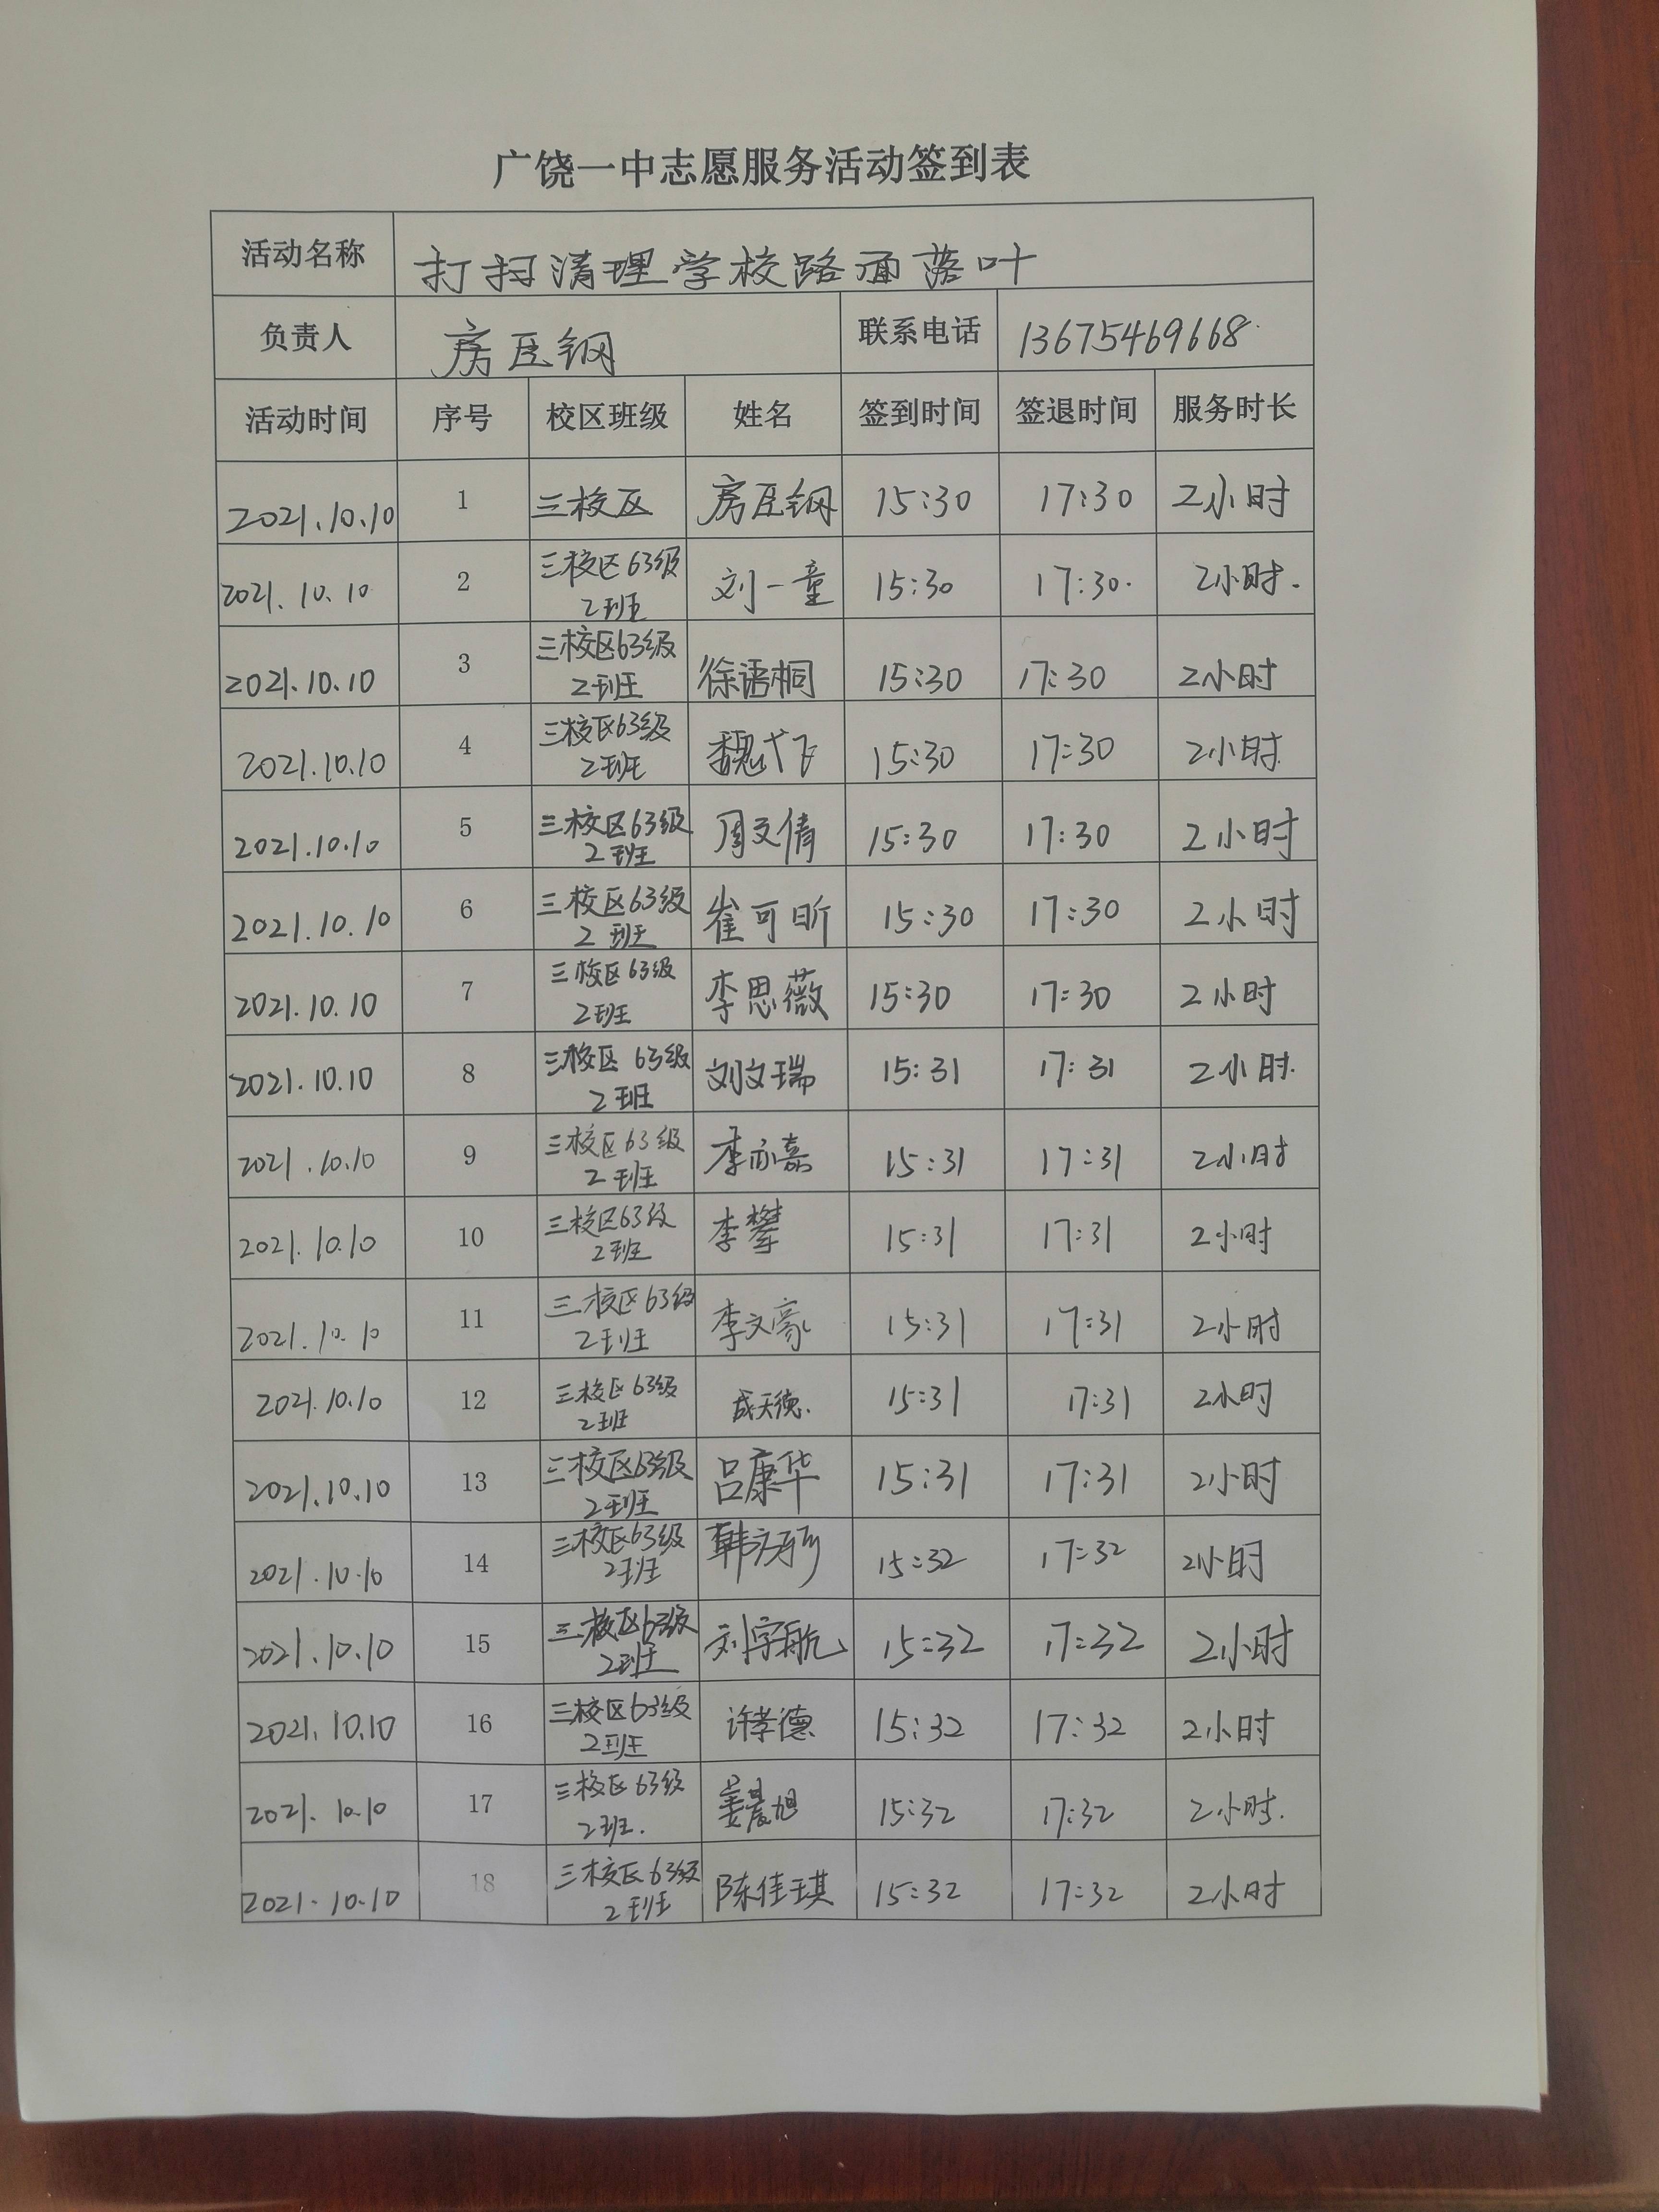 广饶一中志愿服务活动签到表
活动名称 打扫清理学校路面落叶
负责人 房臣钢 联系电话 13675469668
活动时间 序号 校区班级 姓名 签到时间 签退时间 服务时长
2021.10.10 1 三校区 房臣钢 15:30 17:30 2小时
2021.10.10 2 三校区63级 刘一童 15:30 17:30. 2小时.
2班
2021.10.10 3 三校区63级 徐语桐 15:30 17:30 2小时
2班
2021.10.10 4 三校区63级 魏弋飞 15:30 17:30 2小时
2班
2021.10.10 5 三校区63级 周文倩 15:30 17:30 2小时
2班
2021.10.10 6 三校区63级 崔可昕 15:30 17:30 2小时
2班
2021.10.10 7 三校区63级 李思薇 15:30 17:30 2小时
2班
2021.10.10 8 三校区 63级 刘文瑞 15:31 17:31 2小时.
2班
2021.10.10 9 三校区63级 李亦嘉 15:31 17:31 2小时
2班
2021.10.10 10 三校区63级 李攀 15:31 17:31 2小时
2班
2021.10.10 11 三校区63级 李文豪 15:31 17:31 2小时
2班
2021.10.10 12 三校区63级 成天德. 15:31 17:31 2小时
2班
2021.10.10 13 三校区63级 吕康华 15:31 17:31 2小时
2班
2021.10.10 14 三校区63级 15:32 17:32 2小时
2班
2021.10.10 15 三校区63级 刘宇航 15:32 17:32 2小时
2班
2021.10.10 16 三校区63级 许孝德 15:32 17:32 2小时
2班
2021.10.10 17 三校区63级 姜晨旭 15:32 17:32 2小时.
2班.
2021.10.10 18 三校区63级 陈佳琪 15:32 17:32 2小时
2班